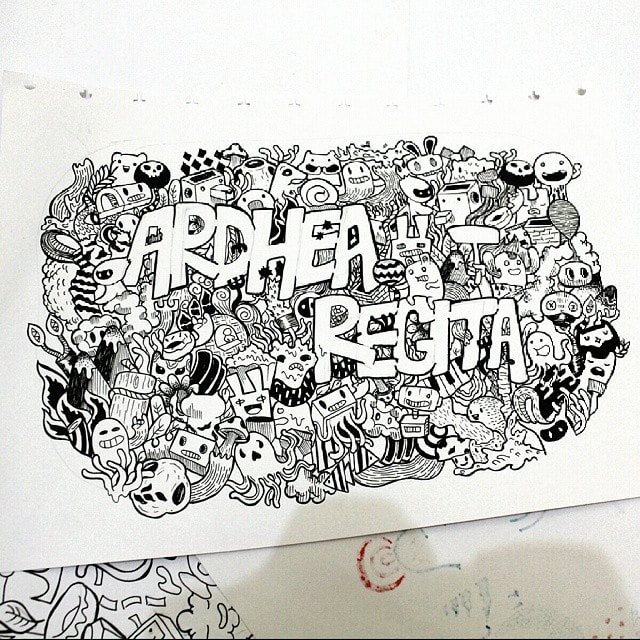 ARDHEA
REGITA